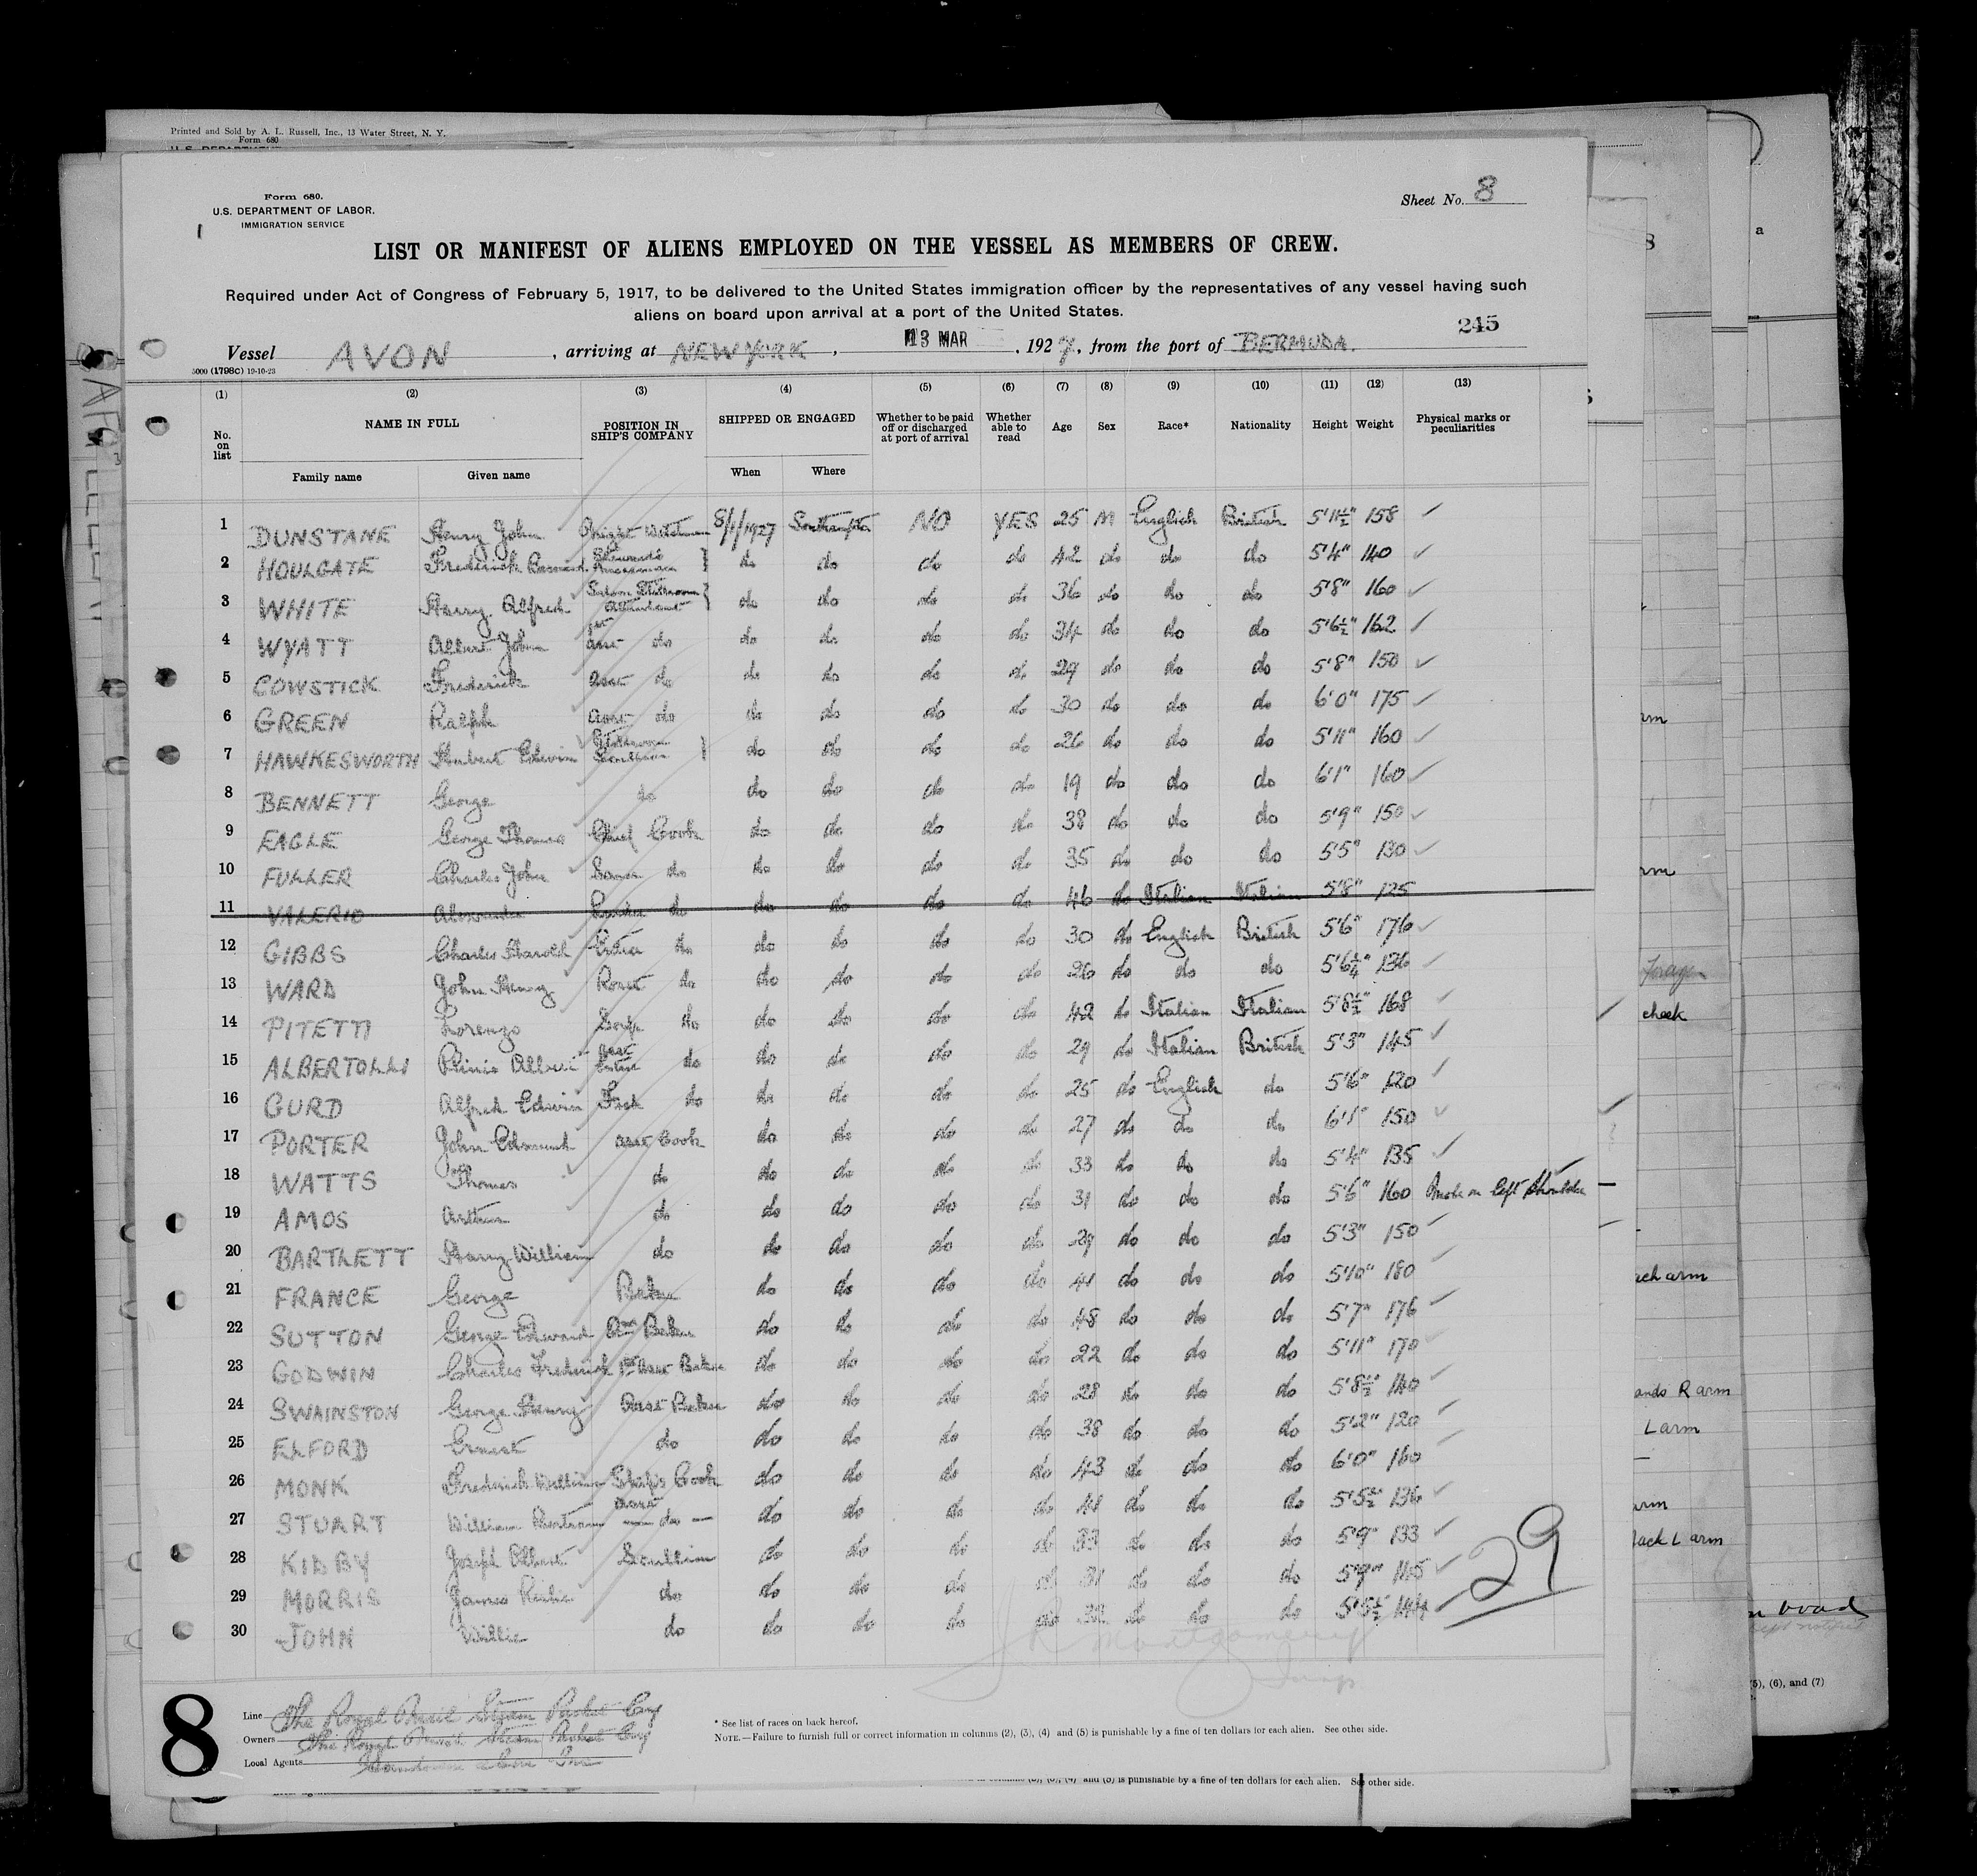 Printed and Sold by A. L. Russell, Inc., 13 Water Street, N. Y.
Form 680
Form 680.
U.S. DEPARTMENT OF LABOR.
IMMIGRATION SERVICE
Sheet No. 8
LIST OR MANIFEST OF ALIENS EMPLOYED ON THE VESSEL AS MEMBERS OF CREW.
Required under Act of Congress of February 5, 1917, to be delivered to the United States immigration officer by the representatives of any vessel having such
aliens on board upon arrival at a port of the United States.
245
Vessel AVON, arriving at NEW YORK, 13 MAR, 1927, from the port of BERMUDA.
5000 (1798C) 19-10-23
(1) (2) (3) (4) (5) (6) (7) (8) (9) (10) (11) (12) (13)
No. on list NAME IN FULL POSITION IN SHIP'S COMPANY SHIPPED OR ENGAGED Whether to be paid off or discharged at port of arrival Whether able to read Age Sex Race* Nationality Height Weight Physical marks or peculiarities
Family name Given name When Where
1 DUNSTANE Henry John Night Watchman 8/1/1927 Southampton NO YES 25 M English British 5'11½" 158
2 HOULGATE Frederick do do do do 42 do do do 5'4" 140
3 WHITE Harry Alfred Saloon Stillroom Attendant do do do do 36 do do do 5'8" 160
4 WYATT Albert John 1st asst do do do do do 34 do do do 5'6½" 162
5 COWSTICK Frederick asst do do do do do 29 do do do 5'8" 150
6 GREEN Ralph asst do do do do do 30 do do do 6'0" 175
7 HAWKESWORTH Hubert Edwin Stillroom Scullion do do do do 26 do do do 5'11" 160
8 BENNETT George do do do do do 19 do do do 6'1" 160
9 EAGLE George Thomas Chief Cook do do do do 38 do do do 5'9" 150
10 FULLER Charles John Sauce do do do do do 35 do do do 5'5" 130
11 VALERIO Alexander do do do do do 46 do Italian Italian 5'8" 125
12 GIBBS Charles Harold Extra do do do do do 30 do English British 5'6" 176
13 WARD John Henry Roast do do do do do 26 do do do 5'6¼" 136
14 PITETTI Lorenzo do do do do do 42 do Italian Italian 5'8½" 168
15 ALBERTOLLI Plinio asst do do do do do 29 do Italian British 5'3" 145
16 GURD Alfred Edwin do do do do do 25 do English do 5'6" 120
17 PORTER John Edmund asst Cook do do do do 27 do do do 6'1" 150
18 WATTS Thomas do do do do do 33 do do do 5'4" 135
19 AMOS Arthur do do do do do 31 do do do 5'6" 160 on left shoulder
20 BARTLETT Harry William do do do do do 29 do do do 5'3" 150
21 FRANCE George Baker do do do do 41 do do do 5'10" 180
22 SUTTON George Edward Baker do do do do 48 do do do 5'7" 176
23 GODWIN Charles Frederick 1st Asst Baker do do do do 22 do do do 5'11" 170
24 SWAINSTON George Henry Asst Baker do do do do 28 do do do 5'8½" 140
25 ELFORD Ernest do do do do do 38 do do do 5'2" 120
26 MONK Frederick William Ship's Cook do do do do 43 do do do 6'0" 160
27 STUART William Bertram asst — do — do do do do 41 do do do 5'5½" 136
28 KIDBY Joseph Albert Scullion do do do do 33 do do do 5'9" 133
29 MORRIS James do do do do do 31 do do do 5'9"
30 JOHN Willie do do do do do do do do 5'5½" 144
29
J R Montgomery
Insp
8
Line The Royal Mail Steam Packet Coy
Owners The Royal Mail Steam Packet Coy
Local Agents
* See list of races on back hereof.
NOTE.—Failure to furnish full or correct information in columns (2), (3), (4) and (5) is punishable by a fine of ten dollars for each alien. See other side.
and (5) is punishable by a fine of ten dollars for each alien. See other side.
cheek
arm
ands R arm
L arm
arm
L arm
(5), (6), and (7)